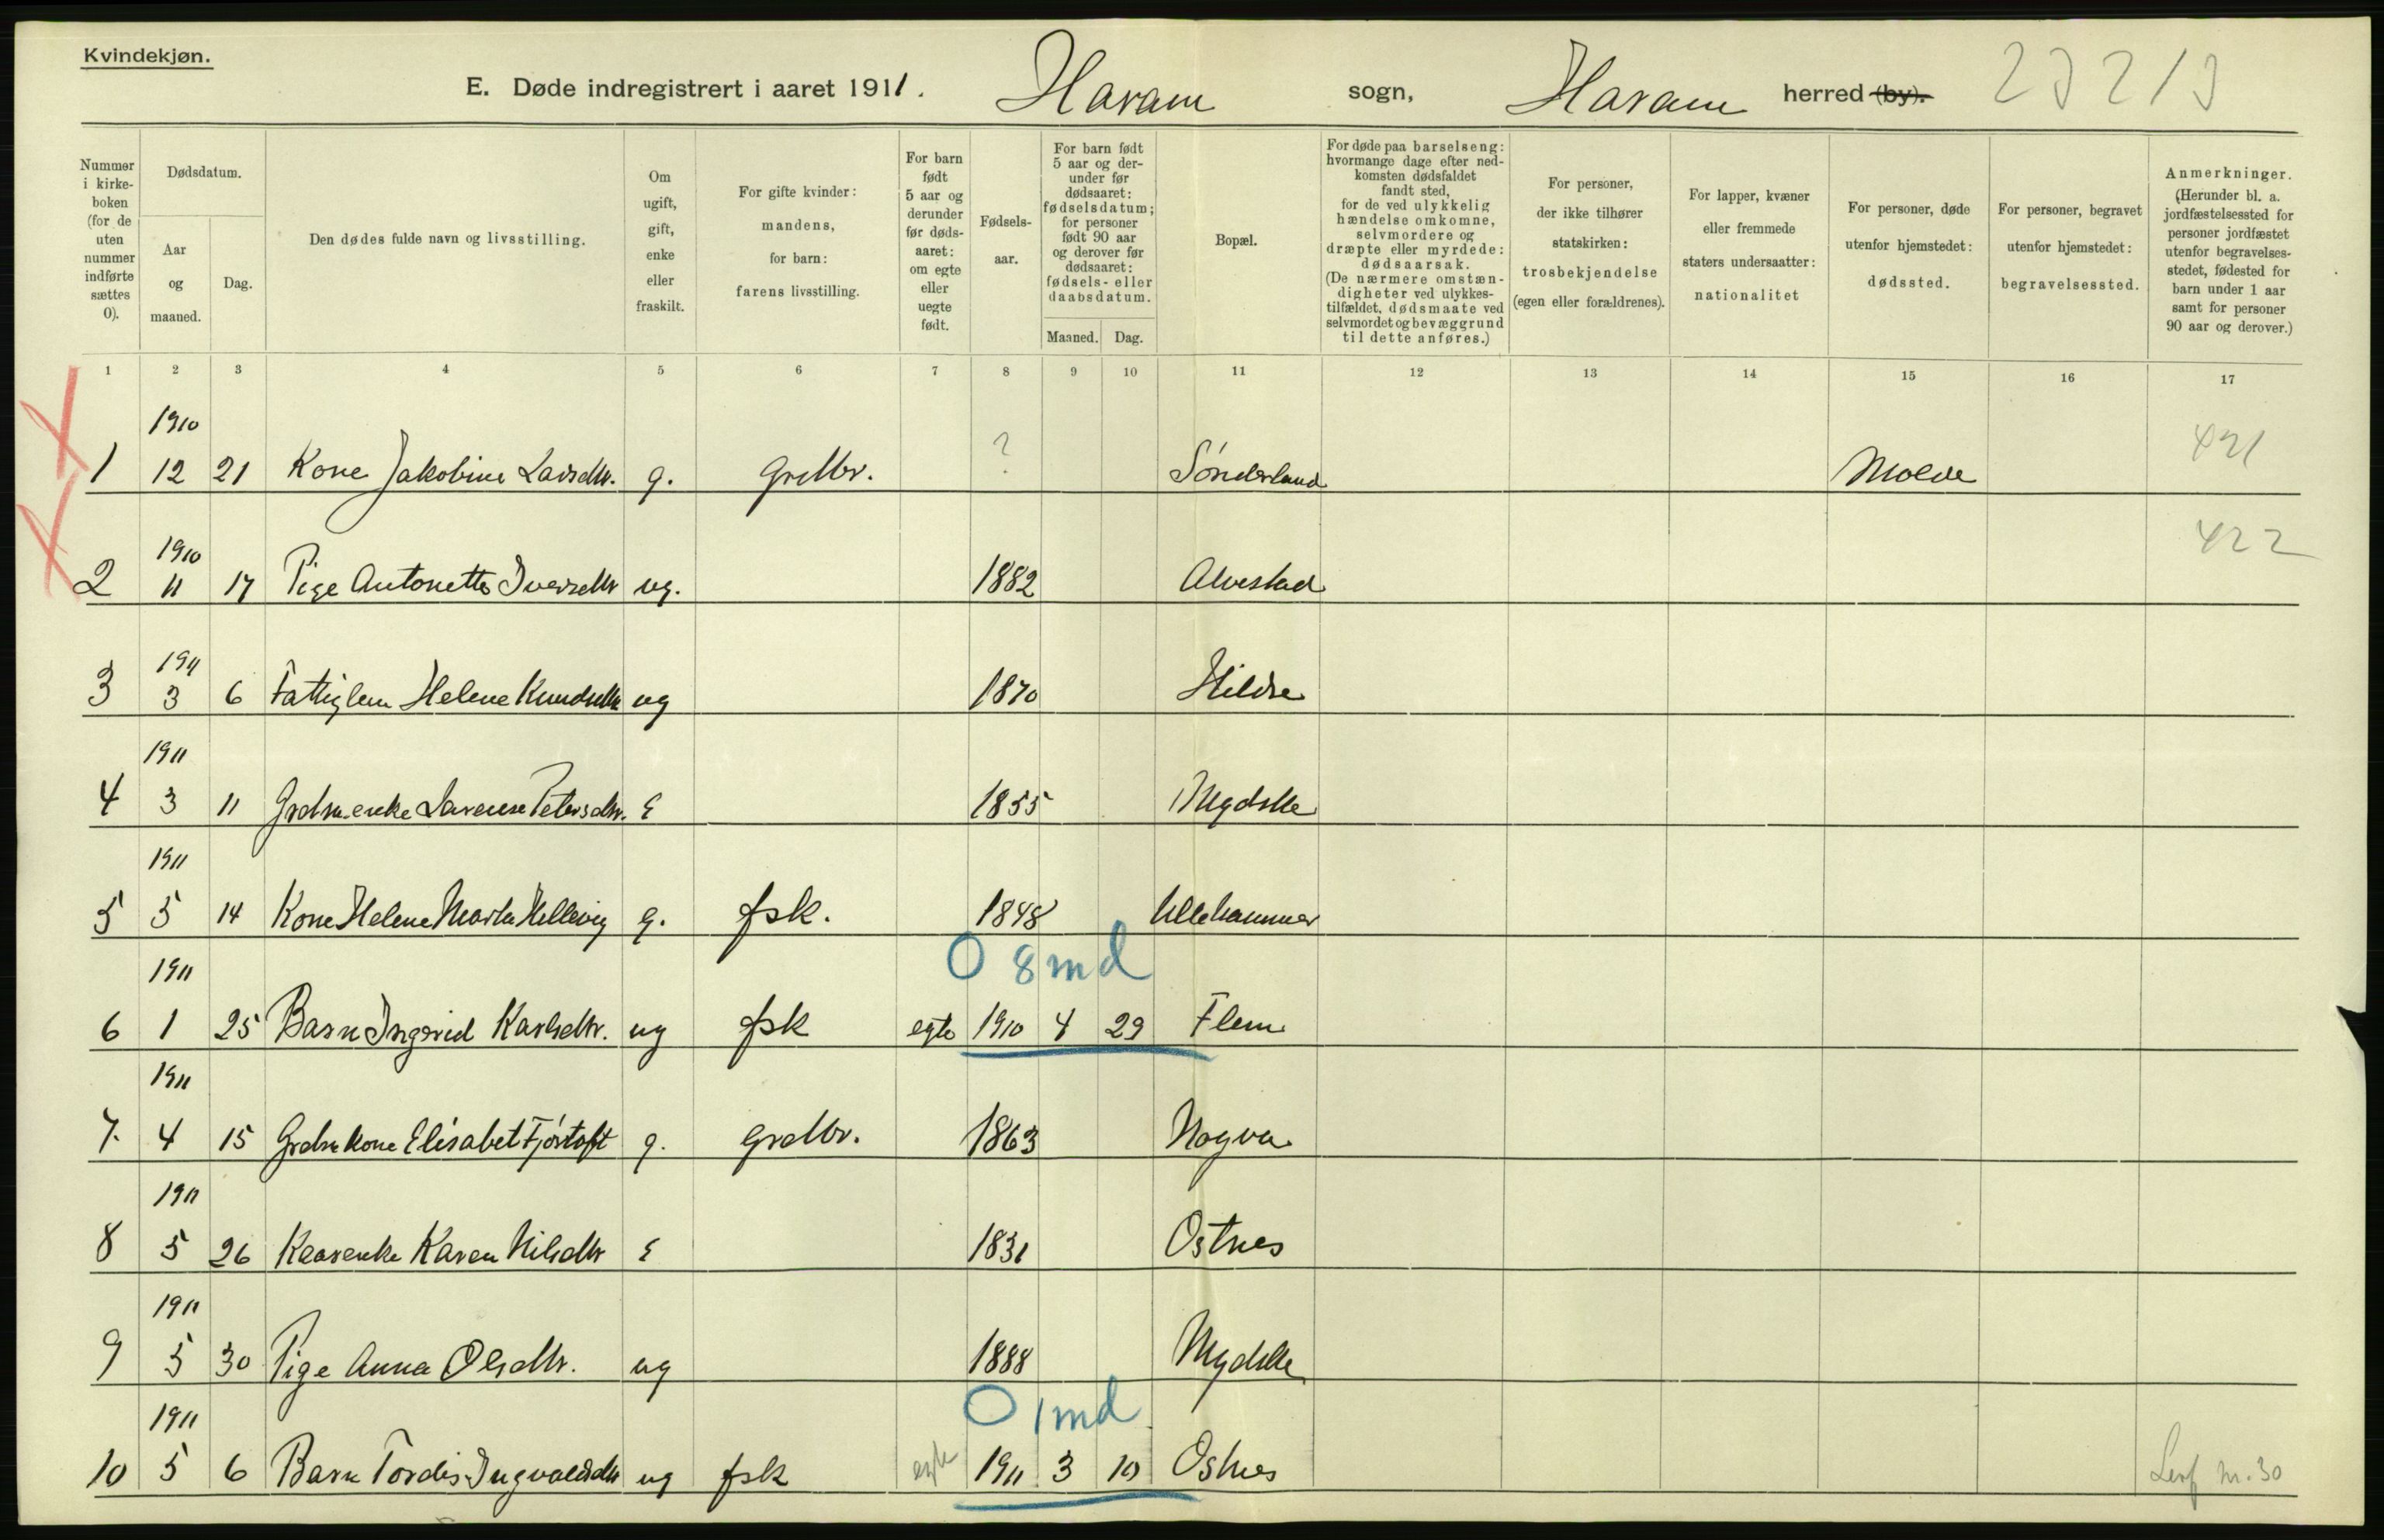 Kvindekjøn.
E. Døde indregistrert i aaret 1911. Haram sogn, Haram herred (by).
Nummer i kirke- boken (for de uten nummer indførte sættes 0).
Dødsdatum.
Aar og maaned.
Dag.
Den dødes fulde navn og livsstilling.
Om ugift, gift, enke eller fraskilt.
For gifte kvinder: mandens, for barn: farens livsstilling.
For barn født 5 aar og derunder før døds- aaret: om egte eller uegte født.
Fødsels- aar.
For barn født 5 aar og der- under før dødsaaret: fødselsdatum; for personer født 90 aar og derover før dødsaaret: fødsels- eller daabsdatum.
Maaned. Dag.
Bopæl.
For døde paa barselseng: hvormange dage efter ned- komsten dødsfaldet fandt sted, for de ved ulykkelig hændelse omkomne, selvmordere og dræpte eller myrdede: dødsaarsak. (De nærmere omstæn- digheter ved ulykkes- tilfældet, dødsmaate ved selvmordet og bevæggrund til dette anføres.)
For personer, der ikke tilhører statskirken: trosbekjendelse (egen eller forældrenes).
For lapper, kvæner eller fremmede staters undersaatter: nationalitet
For personer, døde utenfor hjemstedet: dødssted.
For personer, begravet utenfor hjemstedet: begravelsessted.
Anmerkninger. (Herunder bl. a. jordfæstelsessted for personer jordfæstet utenfor begravelses- stedet, fødested for barn under 1 aar samt for personer 90 aar og derover.)
1 2 3 4 5 6 7 8 9 10 11 12 13 14 15 16 17
1910
1 12 21 Kone Jakobine Larsdtr. g. Grdbr. ? Sønderland Molde 421
1910
2 11 17 Pige Antonette Iversdtr ug. 1882 Alvestad 422
1911
3 3 6 Fattiglem Helene Knudsdtr ug 1870 Hildre
1911
4 3 11 Grdm.enke Lavense Petersdtr. E 1855
1911
5 5 14 Kone Helene Marta Hellevig g. fsk. 1848 Ullehammer
0 8 md
1911
6 1 25 Barn Ingrid Karlsdtr. ug fsk egte 1910 4 29 Flem
1911
7. 4 15 Grdm kone Elisabet Fjørtoft g. Grdbr. 1863 Nogva
1911
8 5 26 Kaarenke Karen Nilsdtr E 1831 Ostnes
1911
9 5 30 Pige Anna Olsdtr. ug 1888
0 1 md
1911
10 5 6 Barn Tordis Ingvaldsdtr ug fsk egte 1911 3 10 Ostnes nr. 30